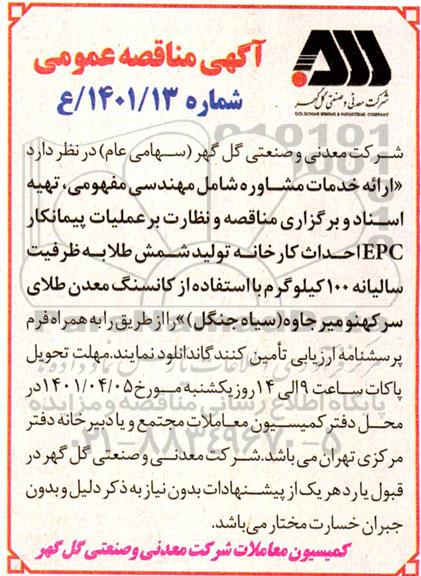 آگهی مناقصه عمومی
شماره ۱۴۰۱/۱۳/ع
شرکت معدنی و صنعتی گل گهر
GOLGOHAR MINING & INDUSTRIAL COMPANY
شرکت معدنی و صنعتی گل گهر (سهامی عام) در نظر دارد
«ارائه خدمات مشاوره شامل مهندسی مفهومی، تهیه
اسناد و برگزاری مناقصه و نظارت بر عملیات پیمانکار
EPC احداث کارخانه تولید شمش طلا به ظرفیت
سالیانه ۱۰۰ کیلوگرم با استفاده از کانسنگ معدن طلای
سرکهنو میر جاوه (سیاه جنگل)» را از طریق را به همراه فرم
پرسشنامه ارزیابی تأمین کنندگان دانلود نمایند. مهلت تحویل
پاکات ساعت ۹ الی ۱۴ روز یکشنبه مورخ ۱۴۰۱/۰۴/۰۵ در
محل دفتر کمیسیون معاملات مجتمع و یا دبیرخانه دفتر
مرکزی تهران می باشد. شرکت معدنی و صنعتی گل گهر در
قبول یا رد هر یک از پیشنهادات بدون نیاز به ذکر دلیل و بدون
جبران خسارت مختار می باشد.
کمیسیون معاملات شرکت معدنی و صنعتی گل گهر
پایگاه اطلاع رسانی مناقصه و مزایده
۰۲۱-۸۸۳۴۹۶۷۰-۵